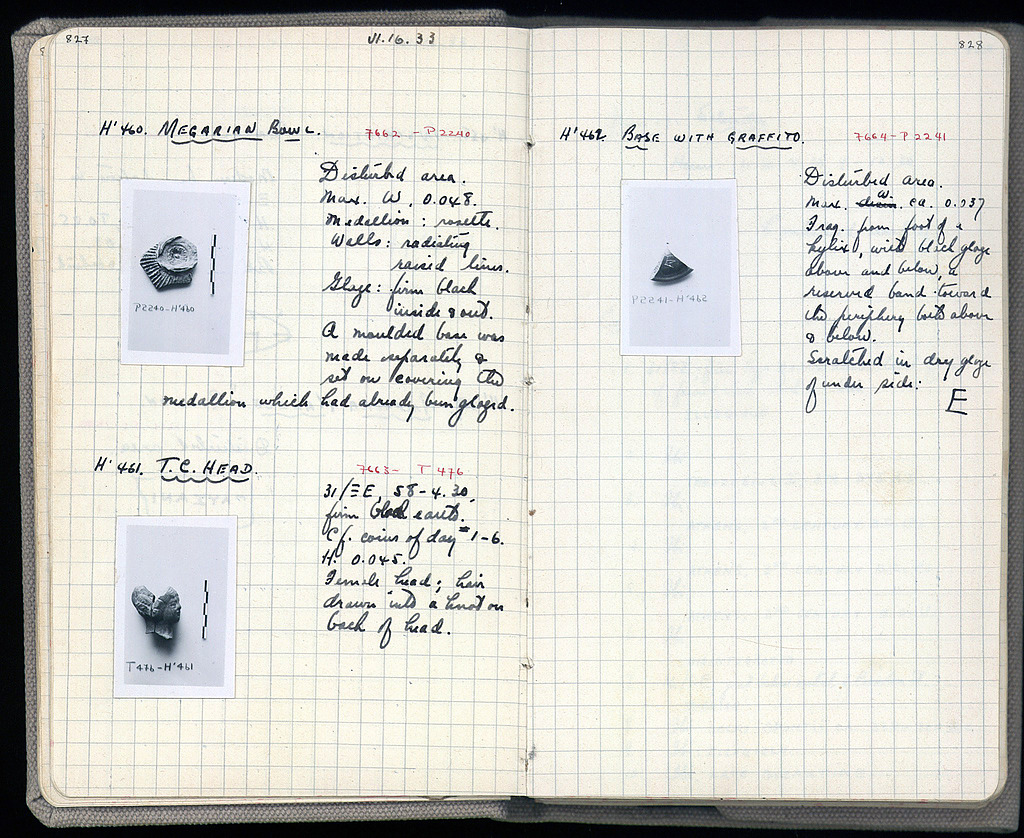 827
VI.16.33
H' 460. MEGARIAN BOWL.
7662 - P2240
Disturbed area.
Max. W. 0.048.
Medallion: rosette.
Walls: radiating
raised lines.
Glaze: firm black
inside & out.
A moulded base was
made separately &
set on covering the
medallion which had already been glazed.
P2240-H'460
H' 461. T.C. HEAD.
7663- T 476
31/ΞE, 58-4.30,
firm black earth.
Cf. coins of day # 1-6.
H. 0.045.
Female head; hair
drawn into a knot on
back of head.
T476-H'461
828
H' 462. BASE WITH GRAFFITO.
7664-P2241
Disturbed area.
Max. W. ca. 0.037
Frag. from foot of a
kylix, with black glaze
above and below, a
reserved band toward
the periphery both above
& below.
Scratched in dry glaze
of under side:
E
P2241-H'462